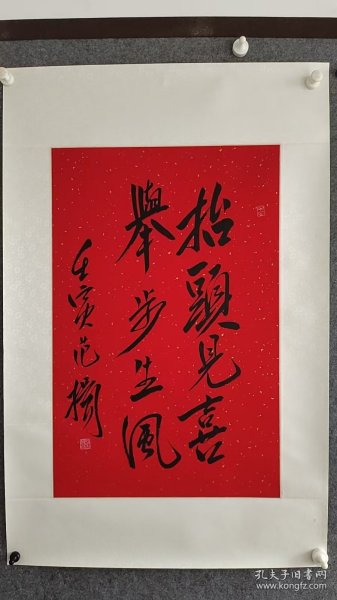 抬頭見喜
舉步生風
壬寅范揚
孔夫子旧书网
www.kongfz.com